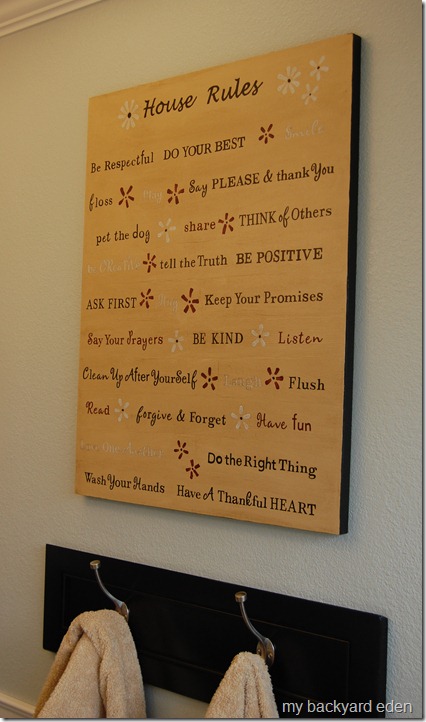 House Rules
Be Respectful DO YOUR BEST Smile
floss Play Say PLEASE & thank You
pet the dog share THINK of Others
Be Creative tell the Truth BE POSITIVE
ASK FIRST Hug Keep Your Promises
Say Your Prayers BE KIND Listen
Clean Up After YourSelf Laugh Flush
Read forgive & Forget Have fun
Love One Another Do the Right Thing
Wash Your Hands Have A Thankful HEART
my backyard eden